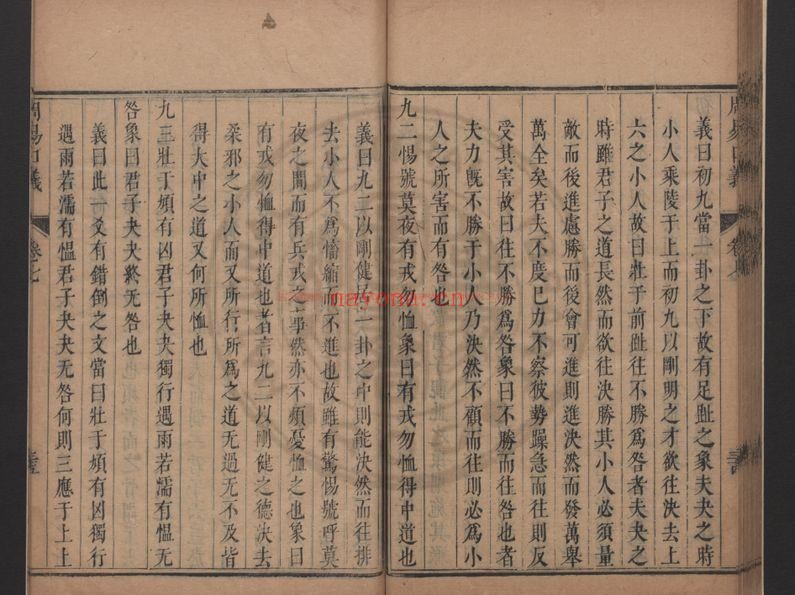 義曰初九當一卦之下故有足趾之象夫夬之時
小人乘陵于上而初九以剛明之才欲往決去上
六之小人故曰壯于前趾往不勝為咎者夫夬之
時雖君子之道長然而欲往決勝其小人必須量
敵而後進慮勝而後會可進則進決然而發萬舉
萬全矣若夫不度已力不察彼勢躁急而往則反
受其害故曰往不勝為咎象曰不勝而往咎也者
夫力旣不勝于小人乃決然不顧而往則必為小
人之所害而有咎也
九二惕號莫夜有戎勿恤象曰有戎勿恤得中道也
義曰九二以剛健居一卦之中則能決然而往排
去小人不為懦緬而不進也故雖有驚惕號呼莫
夜之間而有兵戎之事然亦不煩憂恤之也象曰
有戎勿恤得中道也者言九二以剛健之德決去
柔邪之小人而又所行所為之道无過无不及皆
得大中之道又何所恤也
九三壯于頄有凶君子夬夬獨行遇雨若濡有慍无
咎象曰君子夬夬終无咎也
義曰此一爻有錯倒之文當曰壯于頄有凶獨行
遇雨若濡有慍君子夬夬无咎何則三應于上上
周易口義 卷七